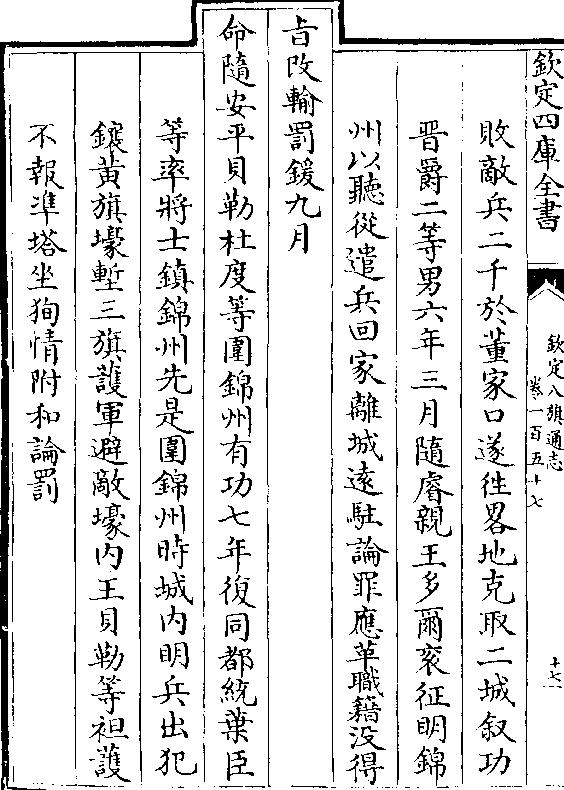 欽定四庫全書
欽定八旗通志
卷一百五十七
十七
敗敵兵二千於董家口遂往畧地克取二城叙功
晋爵二等男六年三月隨睿親王多爾衮征明錦
州以聽從遣兵回家離城遠駐論罪應革職籍没得
旨改輸罰鍰九月
命隨安平貝勒杜度等圍錦州有功七年復同都統葉臣
等率將士鎮錦州先是圍錦州時城内明兵出犯
鑲黄旗壕塹三旗護軍避敵壕内王貝勒等袒護
不報凖塔坐狥情附和論罰